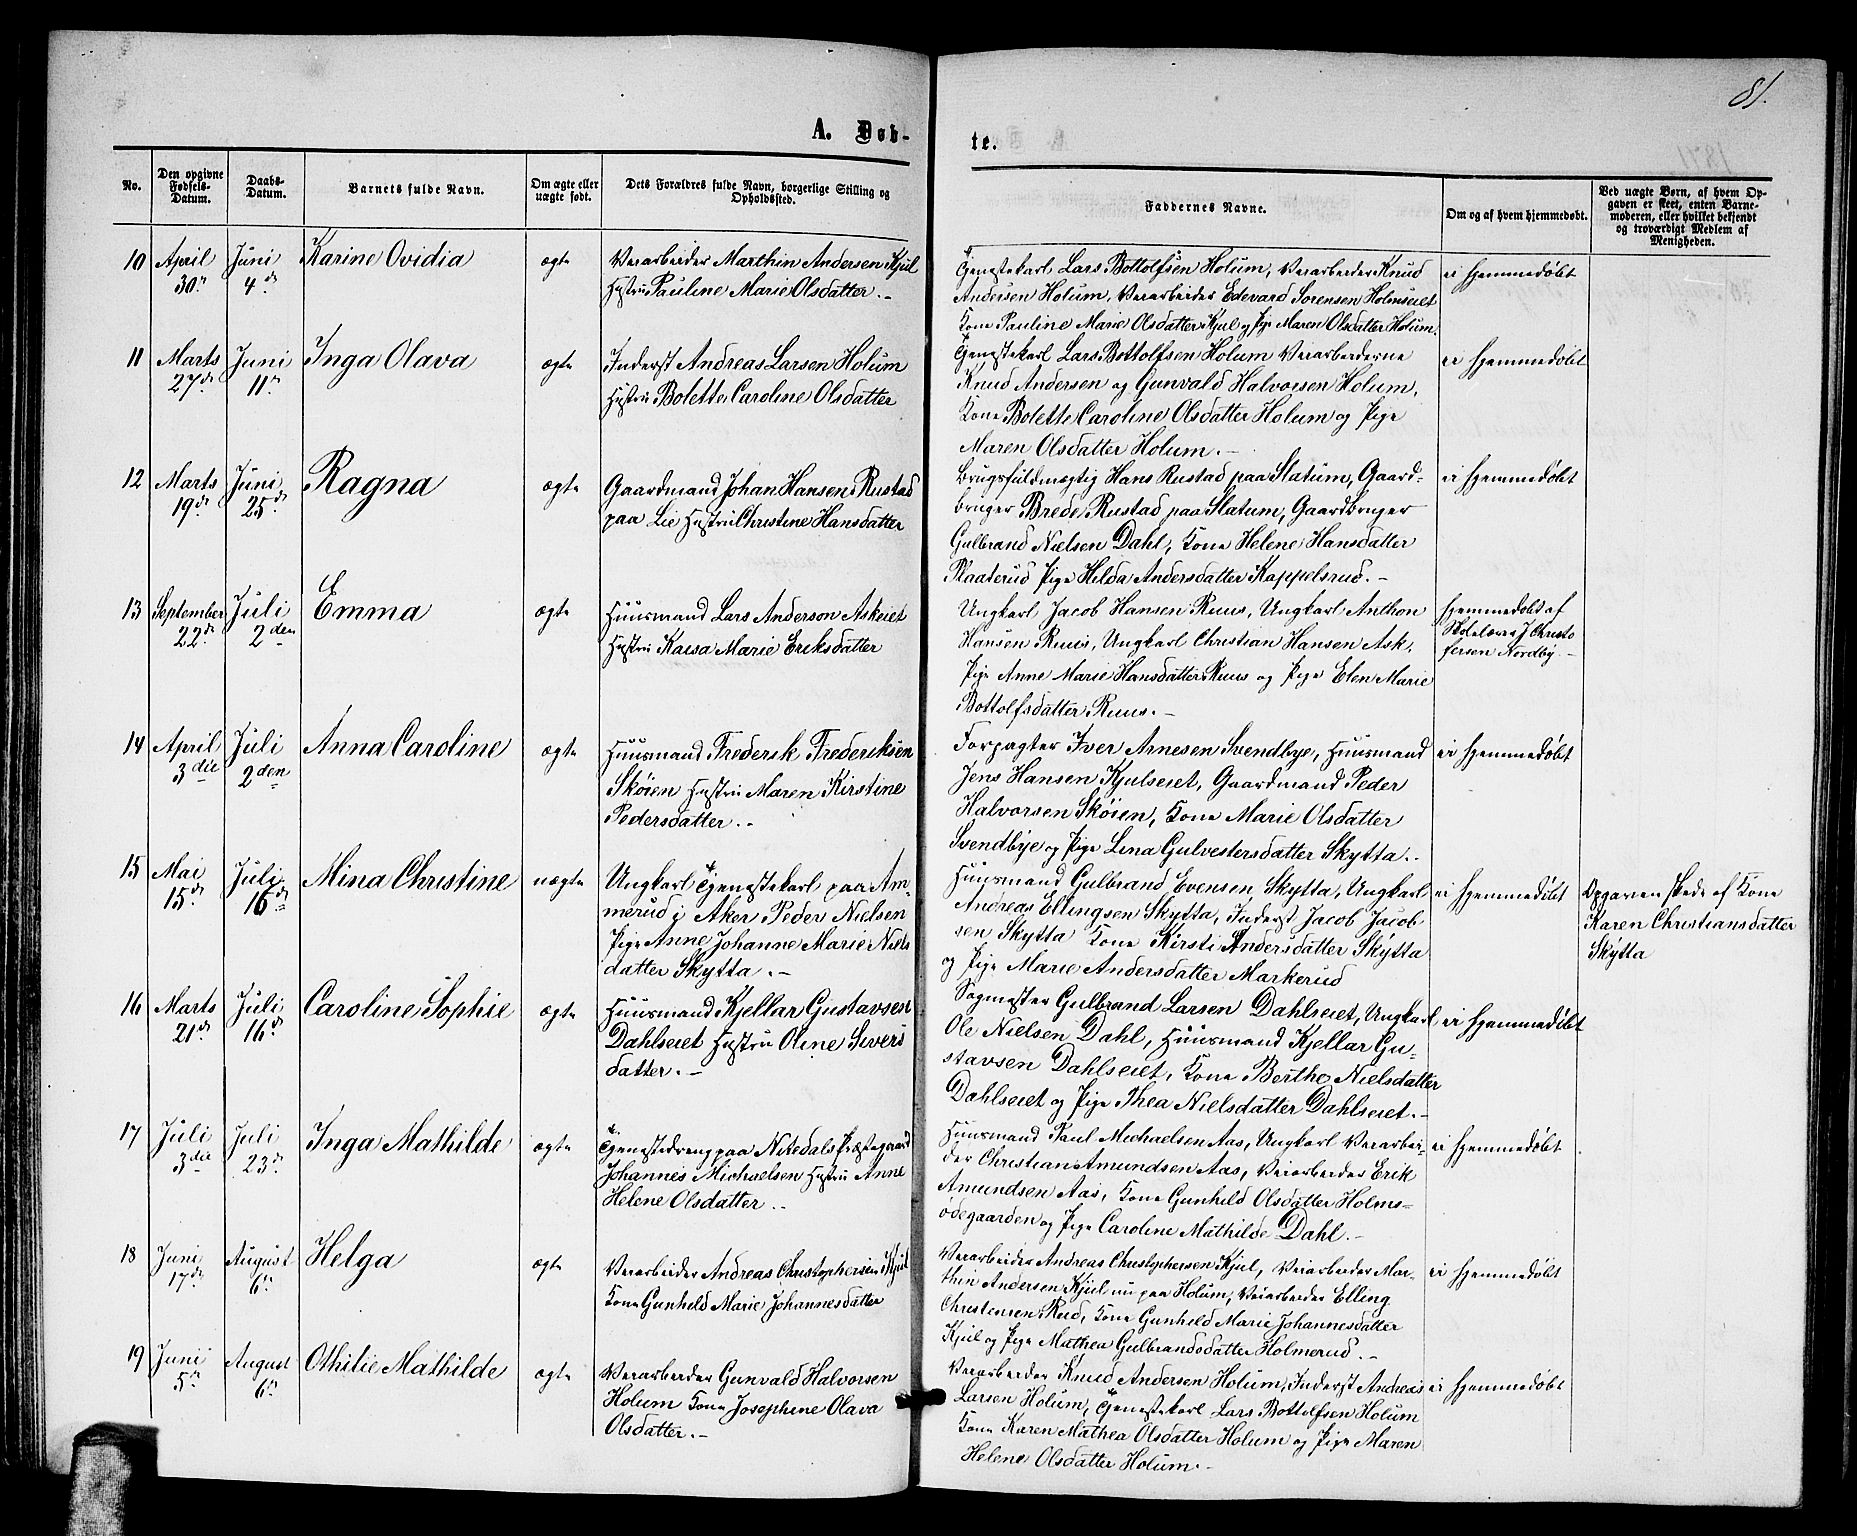 81.
A. Døb-
te.
No.
Den opgivne Fødsels-Datum.
Daabs-Datum.
Barnets fulde Navn.
Om ægte eller uægte født.
Dets Forældres fulde Navn, borgerlige Stilling og Opholdssted.
Faddernes Navne.
Om og af hvem hjemmedøbt.
Ved uægte Børn, af hvem Op-
gaven er skeet, enten Barne-
moderen, eller hvilket bekjendt
og troværdigt Medlem af
Menigheden.
10 April 30te Juni 4de Karine Ovidia ægte
Veiarbeider Marthin Andersen Kjul
Hustru Pauline Marie Olsdatter.-
Tjenestekarl Lars Bottolfsen Holum, Veiarbeider Knud
Andersen Holum, Veiarbeider Edevard Sørensen Holmseiet
Kone Pauline Marie Olsdatter Kjul og Pige Maren Olsdatter Holum.
ei hjemmedøbt
11 Marts 27de Juni 11te Inga Olava ægte
Inderst Andreas Larsen Holum
Hustru Bolette Caroline Olsdatter
Tjenestekarl Lars Bottolfsen Holum Veiarbeiderne
Knud Andersen og Gunvald Halvorsen Holum,
Kone Bolette Caroline Olsdatter Holum og Pige
Maren Olsdatter Holum.-
ei hjemmedøbt
12 Marts 19de Juni 25de Ragna ægte
Gaardmand Johan Hansen Rustad
paa Lie Hustru Christine Hansdatter
Brugsfuldmægtig Hans Rustad paa Slatum, Gaard-
bruger Brede Rustad paa Slatum, Gaardbruger
Gulbrand Nielsen Dahl, Kone Helene Hansdatter
Raaterud Pige Hilda Andersdatter Kappelsrud.-
ei hjemmedøbt
13 September 22de Juli 2den Emma ægte
Huusmand Lars Anderson Askeiet
Hustru Kaisa Marie Eriksdatter
Ungkarl Jacob Hansen Ruus, Ungkarl Anthon
Hansen Ruus, Ungkarl Christian Hansen Ask,
Pige Anne Marie Hansdatter Ruus og Pige Elen Marie
Bottolfsdatter Ruus.-
hjemmedøbt af
Skolelærer J Christo
fersen Nordby.-
14 April 3die Juli 2den Anna Caroline ægte
Huusmand Frederik Frederiksen
Skøien Hustru Maren Kirstine
Pedersdatter.-
Forpagter Iver Arnesen Svendbye, Huusmand
Jens Hansen Kjulseiet, Gaardmand Peder
Halvorsen Skøien, Kone Marie Olsdatter
Svendbye og Pige Lina Gulvestersdatter Skytta.-
ei hjemmedøbt
15 Mai 15de Juli 16de Mina Christine uægte
Ungkarl Tjenestekarl paa Am-
merud i Aker Peder Nielsen
Pige Anne Johanne Marie Niels
datter Skytta.-
Huusmand Gulbrand Evensen Skytta, Ungkarl
Andreas Ellingsen Skytta, Inderst Jacob Jacob
sen Skytta Kone Kirsti Andersdatter Skytta
og Pige Marie Andersdatter Markerud
ei hjemmedøbt
Opgaven skede af Kone
Karen Christiansdatter
Skytta
16 Marts 21de Juli 16de Caroline Sophie ægte
Huusmand Kjellar Gustavsen
Dahlseiet Hustru Oline Sivers
datter.-
Sagmester Gulbrand Larsen Dahlseiet, Ungkarl
Ole Nielsen Dahl, Huusmand Kjellar Gu-
stavsen Dahlseiet, Kone Berthe Nielsdatter
Dahlseiet og Pige Thea Nielsdatter Dahlseiet.-
ei hjemmedøbt
17 Juli 3die Juli 23de Inga Mathilde ægte
Tjenestedreng paa Nitedals Præstegaard
Johannes Michaelsen Hustru Anne
Helene Olsdatter.-
Huusmand Paul Michaelsen Aas, Ungkarl Veiarbei-
der Christian Amundsen Aas, Veiarbeider Erik
Amundsen Aas, Kone Gunhild Olsdatter Holms-
ødegaarden og Pige Caroline Mathilde Dahl.-
ei hjemmedøbt
18 Juni 17de August 6te Helga ægte
Veiarbeider Andreas Christophersen Kjul
Kone Gunhild Marie Johannesdatter
Veiarbeider Andreas Christophersen Kjul, Veiarbeider Mar-
thin Andersen Kjul nu paa Holum, Veiarbeider Elling
Christensen Rud, Kone Gunhild Marie Johannesdatter
Kjul og Pige Mathea Gulbrandsdatter Holmerud.-
ei hjemmedøbt
19 Juni 5te August 6te Othilie Mathilde ægte
Veiarbeider Gunvald Halvorsen
Holum Kone Josephine Olava
Olsdatter.-
Veiarbeider Knud Andersen Holum, Inderst Andreas
Larsen Holum, Tjenestekarl Lars Bottolfsen Holum
Kone Karen Mathea Olsdatter Holum og Pige Maren
Helene Olsdatter Holum.-
ei hjemmedøbt